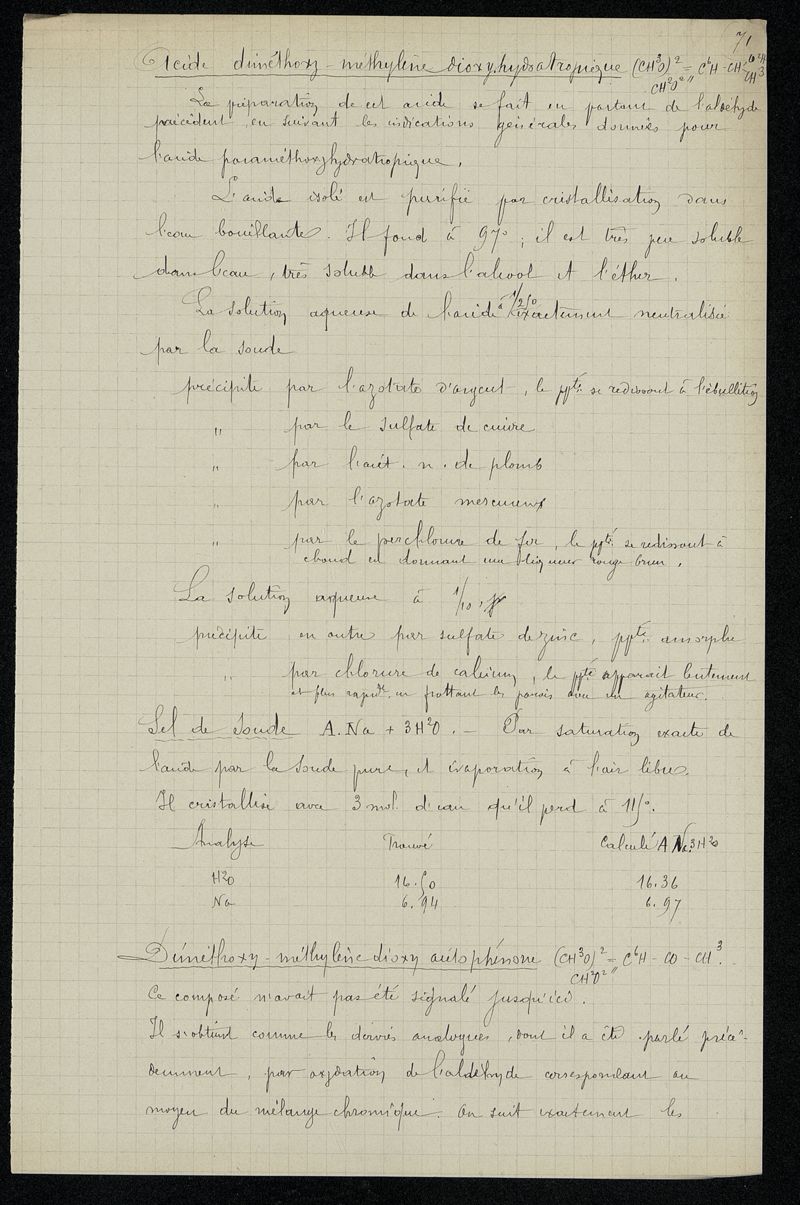 71
Acide diméthoxy-méthylène dioxyhydratropique (CH³O)² = C⁶H - CH CO²H CH³
CH²O² ″
La préparation de cet acide se fait en partant de l'aldéhyde
précédent, en suivant les indications générales données pour
l'acide paraméthoxyhydratropique.
L'acide isolé est purifié par cristallisation dans
l'eau bouillante. Il fond à 97°; il est très peu soluble
dans l'eau, très soluble dans l'alcool et l'éther.
La solution aqueuse de l'acide à 1/250 exactement neutralisée
par la soude
précipite par l'azotate d'argent, le ppté se redissout à l'ébullition
" par le sulfate de cuivre
" par l'acét. n. de plomb
" par l'azotate mercureux
" par le perchlorure de fer, le ppté se redissout à
chaud en donnant une liqueur rouge brun.
La solution aqueuse à 1/10
précipite en outre par sulfate de zinc, ppté amorphe
" par chlorure de calcium, le ppté apparait lentement
et plus rapidt en frottant les parois avec un agitateur.
Sel de soude A.Na + 3H²O. - Par saturation exacte de
l'acide par la soude pure, et évaporation à l'air libre.
Il cristallise avec 3 mol. d'eau qu'il perd à 115°.
Analyse Trouvé Calculé A Na.3H²O
H²O 16.50 16.36
Na 6.94 6.97
Diméthoxy-méthylène dioxy acétophénone (CH³O)² = C⁶H - CO - CH³.
CH²O² ″
Ce composé n'avait pas été signalé jusqu'ici.
Il s'obtient comme les dérivés analogues, dont il a été parlé précé-
demment, par oxydation de l'aldéhyde correspondant au
moyen du mélange chromique. On suit exactement les